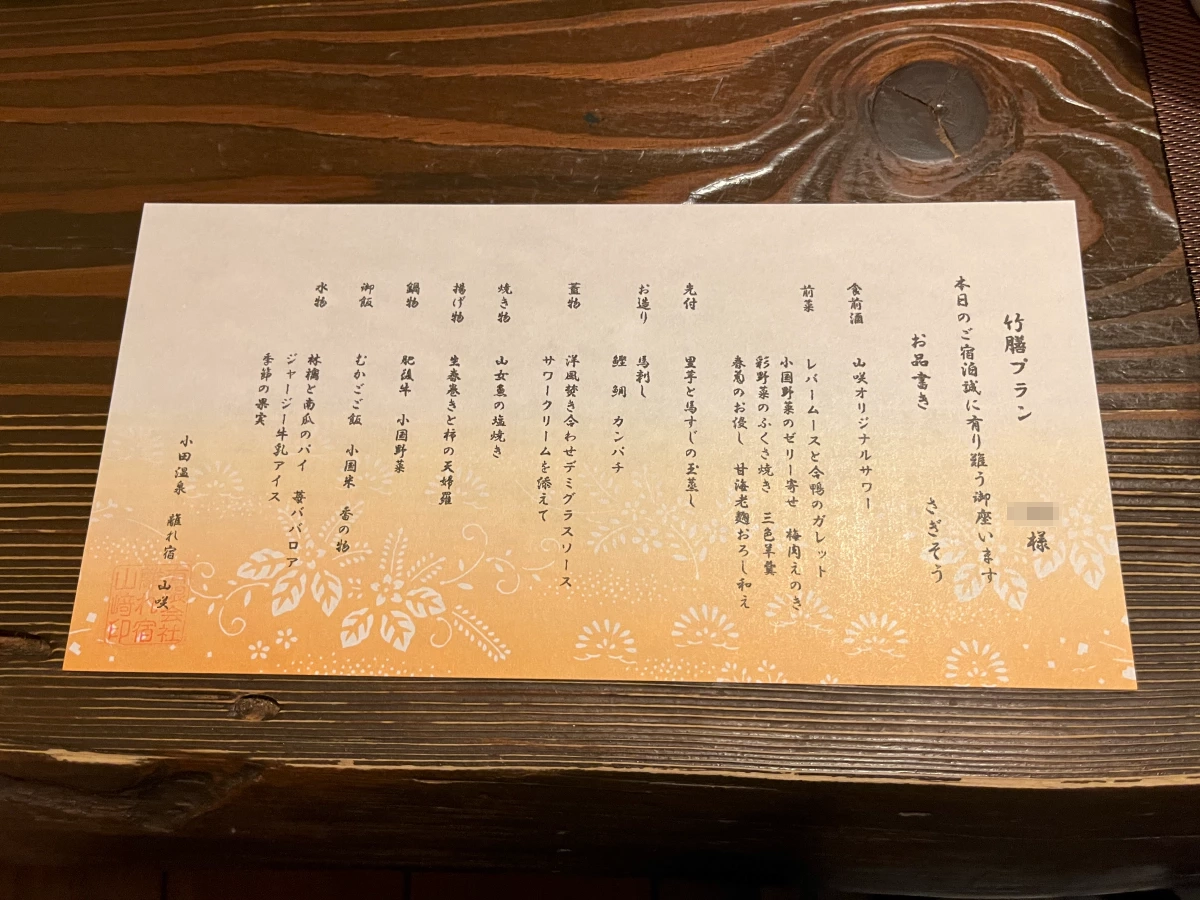 竹膳プラン
様
本日のご宿泊誠に有り難う御座います
お品書き　さぎそう
食前酒　山咲オリジナルサワー
前菜　レバームースと合鴨のガレット
小国野菜のゼリー寄せ　梅肉えのき
彩野菜のふくさ焼き　三色羊羹
春菊のお浸し　甘海老麹おろし和え
先付　里芋と馬すじの玉蒸し
お造り　馬刺し
鰹　鯛　カンパチ
蓋物　洋風焚き合わせデミグラスソース
サワークリームを添えて
焼き物　山女魚の塩焼き
揚げ物　生春巻きと柿の天婦羅
鍋物　肥後牛　小国野菜
御飯　むかごご飯　小国米　香の物
水物　林檎と南瓜のパイ　苺ババロア
ジャージー牛乳アイス
季節の果実
小田温泉　離れ宿　山咲